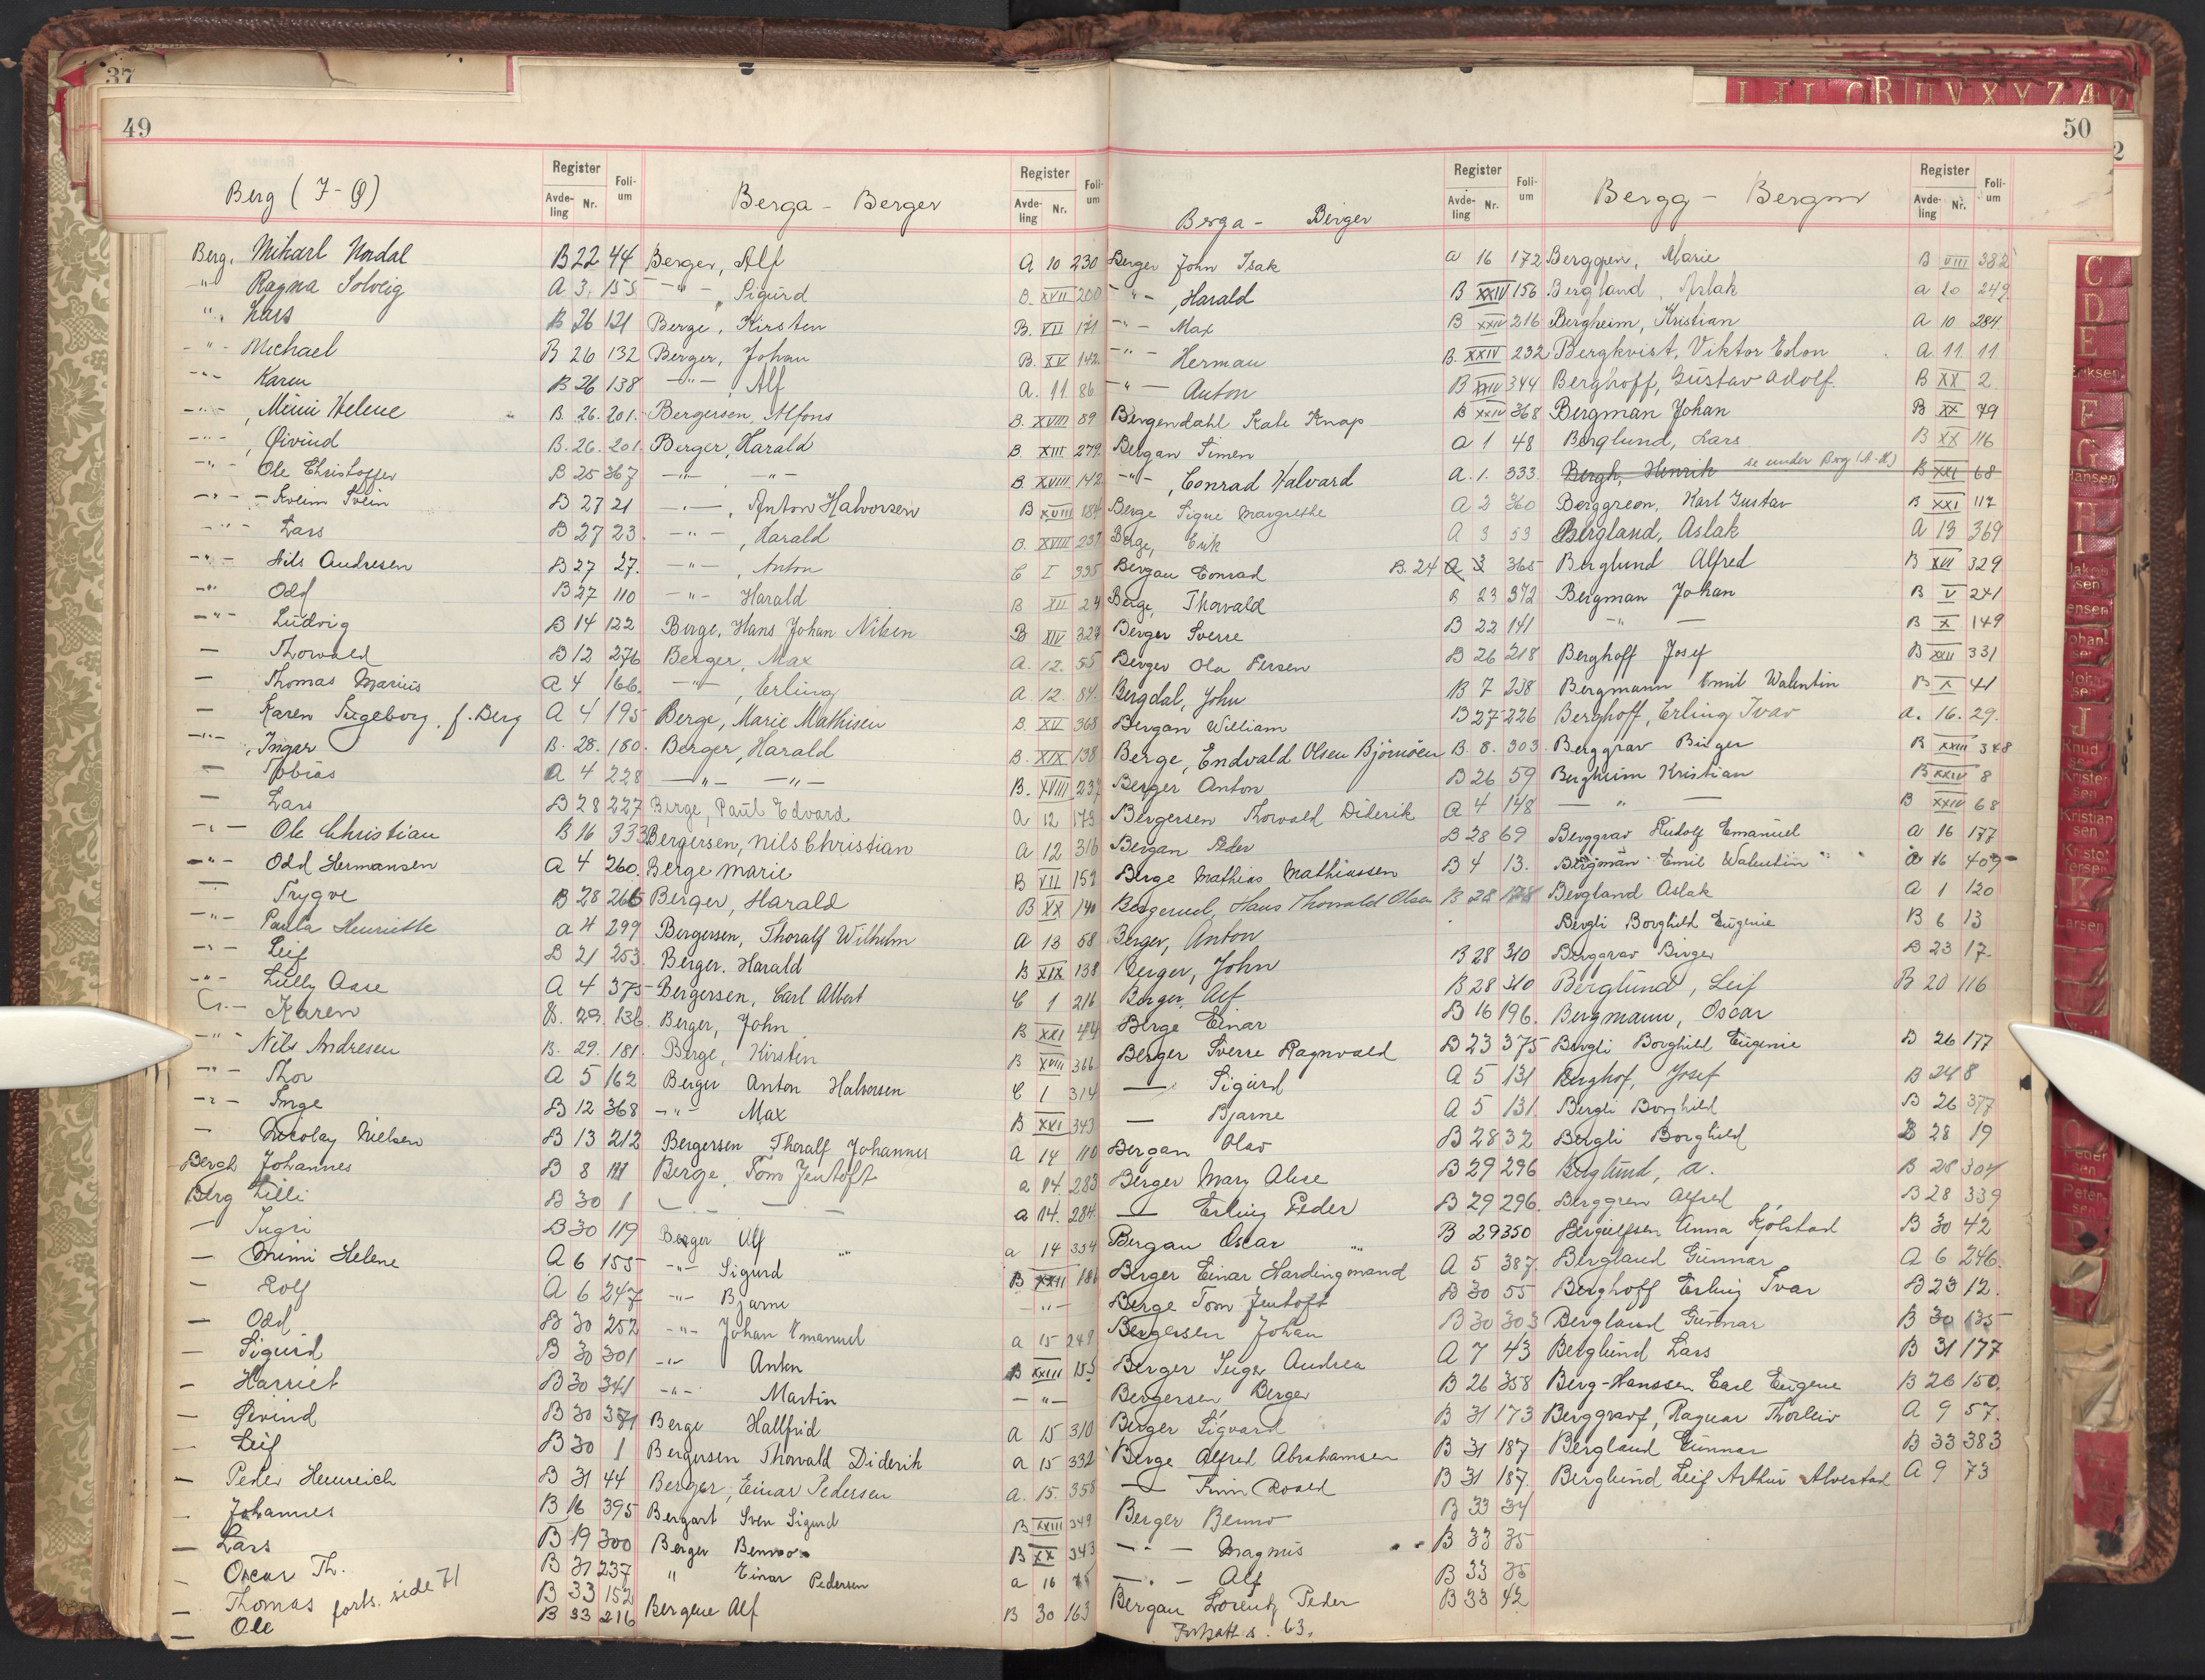 37
49
Berg ( I - Q )
Register
Avde-ling Nr.
Foli-um
Berg, Mikael Nordal B 22 44
-"- Ragna Solveig A 3 155
-"- Lars B 26 121
-"- Michael B 26 132
-"- Karen B 26 138
-"- , Mimi Helene B. 26. 201.
-"- , Øivind B. 26. 201.
-"- Ole Christoffer B 25 367
-"- Svein B 27 21
-"- Lars B 27 23.
-"- Nils Andresen B 27 27.
-"- Odd B 27 110
-"- Ludvig B 14 122
— Thorvald B 12 276
— Thomas Marius A 4 166.
— Karen Ingeborg, f. Berg A 4 195
-"- , Ingar B. 28. 180.
— Tobias A 4 228
— Lars B 28 227
-"- Ole Christian B 16 333
-"- Odd Hermansen A 4 260
— Trygve B 28 266
-"- Paula Henriette a 4 299
-"- Leif B 21 253.
-"- Lully Aase A 4 375
-"- Karen B. 29. 136.
-"- Nils Andresen B. 29. 181.
-"- Thor A 5 162
-"- Inge B 12 368
— Nicolay Nielsen B 13 212
Bergh Johannes B 8 111
Berg Lilli B 30 1
— Ingri B 30 119
— Mimi Helene A 6 155
— Rolf A 6 247
— Odd B 30 252
— Sigurd B 30 301
— Harriet B 30 341
— Øivind B 30 371
— Leif B 30 1
— Peder Heinreich B 31 44
— Johannes B 16 395
— Lars B 19 300
— Oscar Th. B 31 237
— Thomas B 33 152
— Ole B 33 216
forts. side 71
Berga - Berger
Register
Avde-ling Nr.
Foli-um
Berger, Alf A 10 230
-"- , Sigurd B. XVII 200
Berge, Kirsten B. VII 171
Berger, Johan B. XV 142.
-"- , Alf A. 11 86
Bergersen, Alfons B. XVIII 89
Berger, Harald B XIII 279.
-"- -"- B XVIII 142
-"- , Anton Halvorsen B XVIII 184
-"- , Harald B. XVIII 237
-"- , Anton C I 335
-"- Harald B XII 24
Berge, Hans Johan Nilsen B XIV 329
Berger, Max A. 12. 55
-"- , Erling A. 12. 84.
Berge, Marie Mathisen B. XV 368
Berger, Harald B. XIX 138
-"- -"- B. XVIII 237
Berge, Paul Edvard a 12 173
Bergersen, Nils Christian a 12 316
Berge Marie B VII 152
Berger, Harald B XX 140
Bergersen, Thoralf Wilhelm A 13 58
Berger. Harald B XIX 138
Bergersen, Carl Albert C 1 216
Berger, John B XXI 44
Berge, Kirsten B XVIII 366
Berger Anton Halvorsen C 1 314
-"- Max B XXI 343
Bergersen Thoralf Johannes a 14 110
Berge, Tom Jentoft a 14. 283
— — — a 14. 284.
Berger Ulf a 14 334
-"- Sigurd B XXII 186
-"- Bjarne -"-
-"- Johan Emanuel a 15 249
-"- Anton B XXIII 155
-"- Martin -"-
Berge Hallfrid a 15 310
Bergersen Thorvald Diderik a 15 332
Berger, Einar Pedersen a. 15. 358
Bergart Sven Sigurd B XXIII 349
Berger Benno B XX 343
" Einar Pedersen a 16
Bergene Alf B 30 163
50
Berga - Berger
Register
Avde-ling Nr.
Foli-um
Berger John Isak a 16 172
-"- , Harald B XXIV 156
-"- Max B XXIV 216
-"- Herman B. XXIV 232
-"- Anton B XXIV 344
Bergendahl Kate Knap B XXIV 368
Bergan Simen a 1 48
-"- , Conrad Halvard A. 1. 333.
Berge Signe Margrethe A 2 360
Berge, Erik A 3 53
Bergan Conrad B. 24 a 3 365
Berge, Thorvald B 23 372
Berger Sverre B 22 141
Berger Ola Persen B 26 218
Bergdal, John B 7 238
Bergan William B 27 226
Berge, Endvald Olsen Bjørnøen B. 8. 303.
Berger Anton B 26 59
Bergersen Thorvald Diderik A 4 148
Bergan Peder B 28 69
Berge Mathias Mathiassen B 4 13.
Bergerud, Hans Thorvald Olsen B 28
Berger, Anton B 28 310
Berger, John B 28 310
Berger, Alf B 16 196.
Berge Einar B 23 375
Berger Sverre Ragnvald A 5 131
— Sigurd A 5 131
— Bjarne B 28 32
Bergan Olav B 29 296
Berger Mary Alice B 29 296.
— Erling Peder B 29 350
Bergan Oscar A 5 387
Berger Einar Hardingmand B 30 55
Berge Tom Jentoft B 30 303
Bergersen Johan A 7 43
Berger Inger Andrea B 26 358
Bergersen Berger B 31 173
Berger Sigvard B 31 187
Berge Alfred Abrahamsen B 31 187.
— Finn Roald B 33 34
Berger Benno B 33 35
-"- Magnus B 33 35
-"- Alf B 33 42
Bergan Lorentz Peder
Fortsatt s. 63.
Bergg - Bergm
Register
Avde-ling Nr.
Foli-um
Berggren, Marie B VIII 382
Bergland, Aslak a 10 249
Bergheim, Kristian A 10 284
Bergkvist, Viktor Edon A. 11. 11
Berghoff, Gustav Adolf. B XX 2
Bergman Johan B XX 79
Berglund, Lars B XX 116
Bergh, Henrik se under Berg (A-H) B XXI 68
Berggreen, Karl Gustav B XXI 117
Bergland, Aslak A 13 369
Berglund Alfred B XVI 329
Bergman Johan B V 241
-"- — B X 149
Berghoff Josef B XXIII 331
Bergmann Emil Walentin B X 41
Berghoff, Erling Ivar a. 16. 29.
Berggrav Birger B XXIII 348
Bergheim Kristian B XXIV 8
— " — B XXIV 68
Berggrav Rudolf Emanuel a 16 177
Bergman Emil Walentin a 16 409
Bergland Aslak A 1 120
Bergli Borghild Eugenie B 6 13
Berggrav Birger B 23 17.
Berglund, Leif B 20 116
Bergmann, Oscar
Bergli Borghild Eugenie B 26 177
Berghof, Josef B 24 8
Bergli Borghild B 26 377
Bergli Borghild B 28 19
Berglund, a. B 28 304
Berggren Alfred B 28 339
Bergulfsen Anna Kjølstad B 30 42
Bergland Gunnar A 6 246.
Berghoff Erling Ivar B 23 12.
Bergland Gunnar B 30 135
Berglund Lars B 31 177
Berg-Hanssen Carl Eugene B 26 150.
Berggrav, Ragnar Thorleiv A 9 57.
Bergland Gunnar B 33 383
Berglund Leif Arthur Alvestad A 9 73
R U V X Y Z Æ
C
D
E
Eriksen
F
G
Hansen
H
I
Jakobsen
Jensen
Johansen
J
Knudsen
Kristensen
Kristiansen
Kristoffersen
K
Larsen
O
Pedersen
Petersen